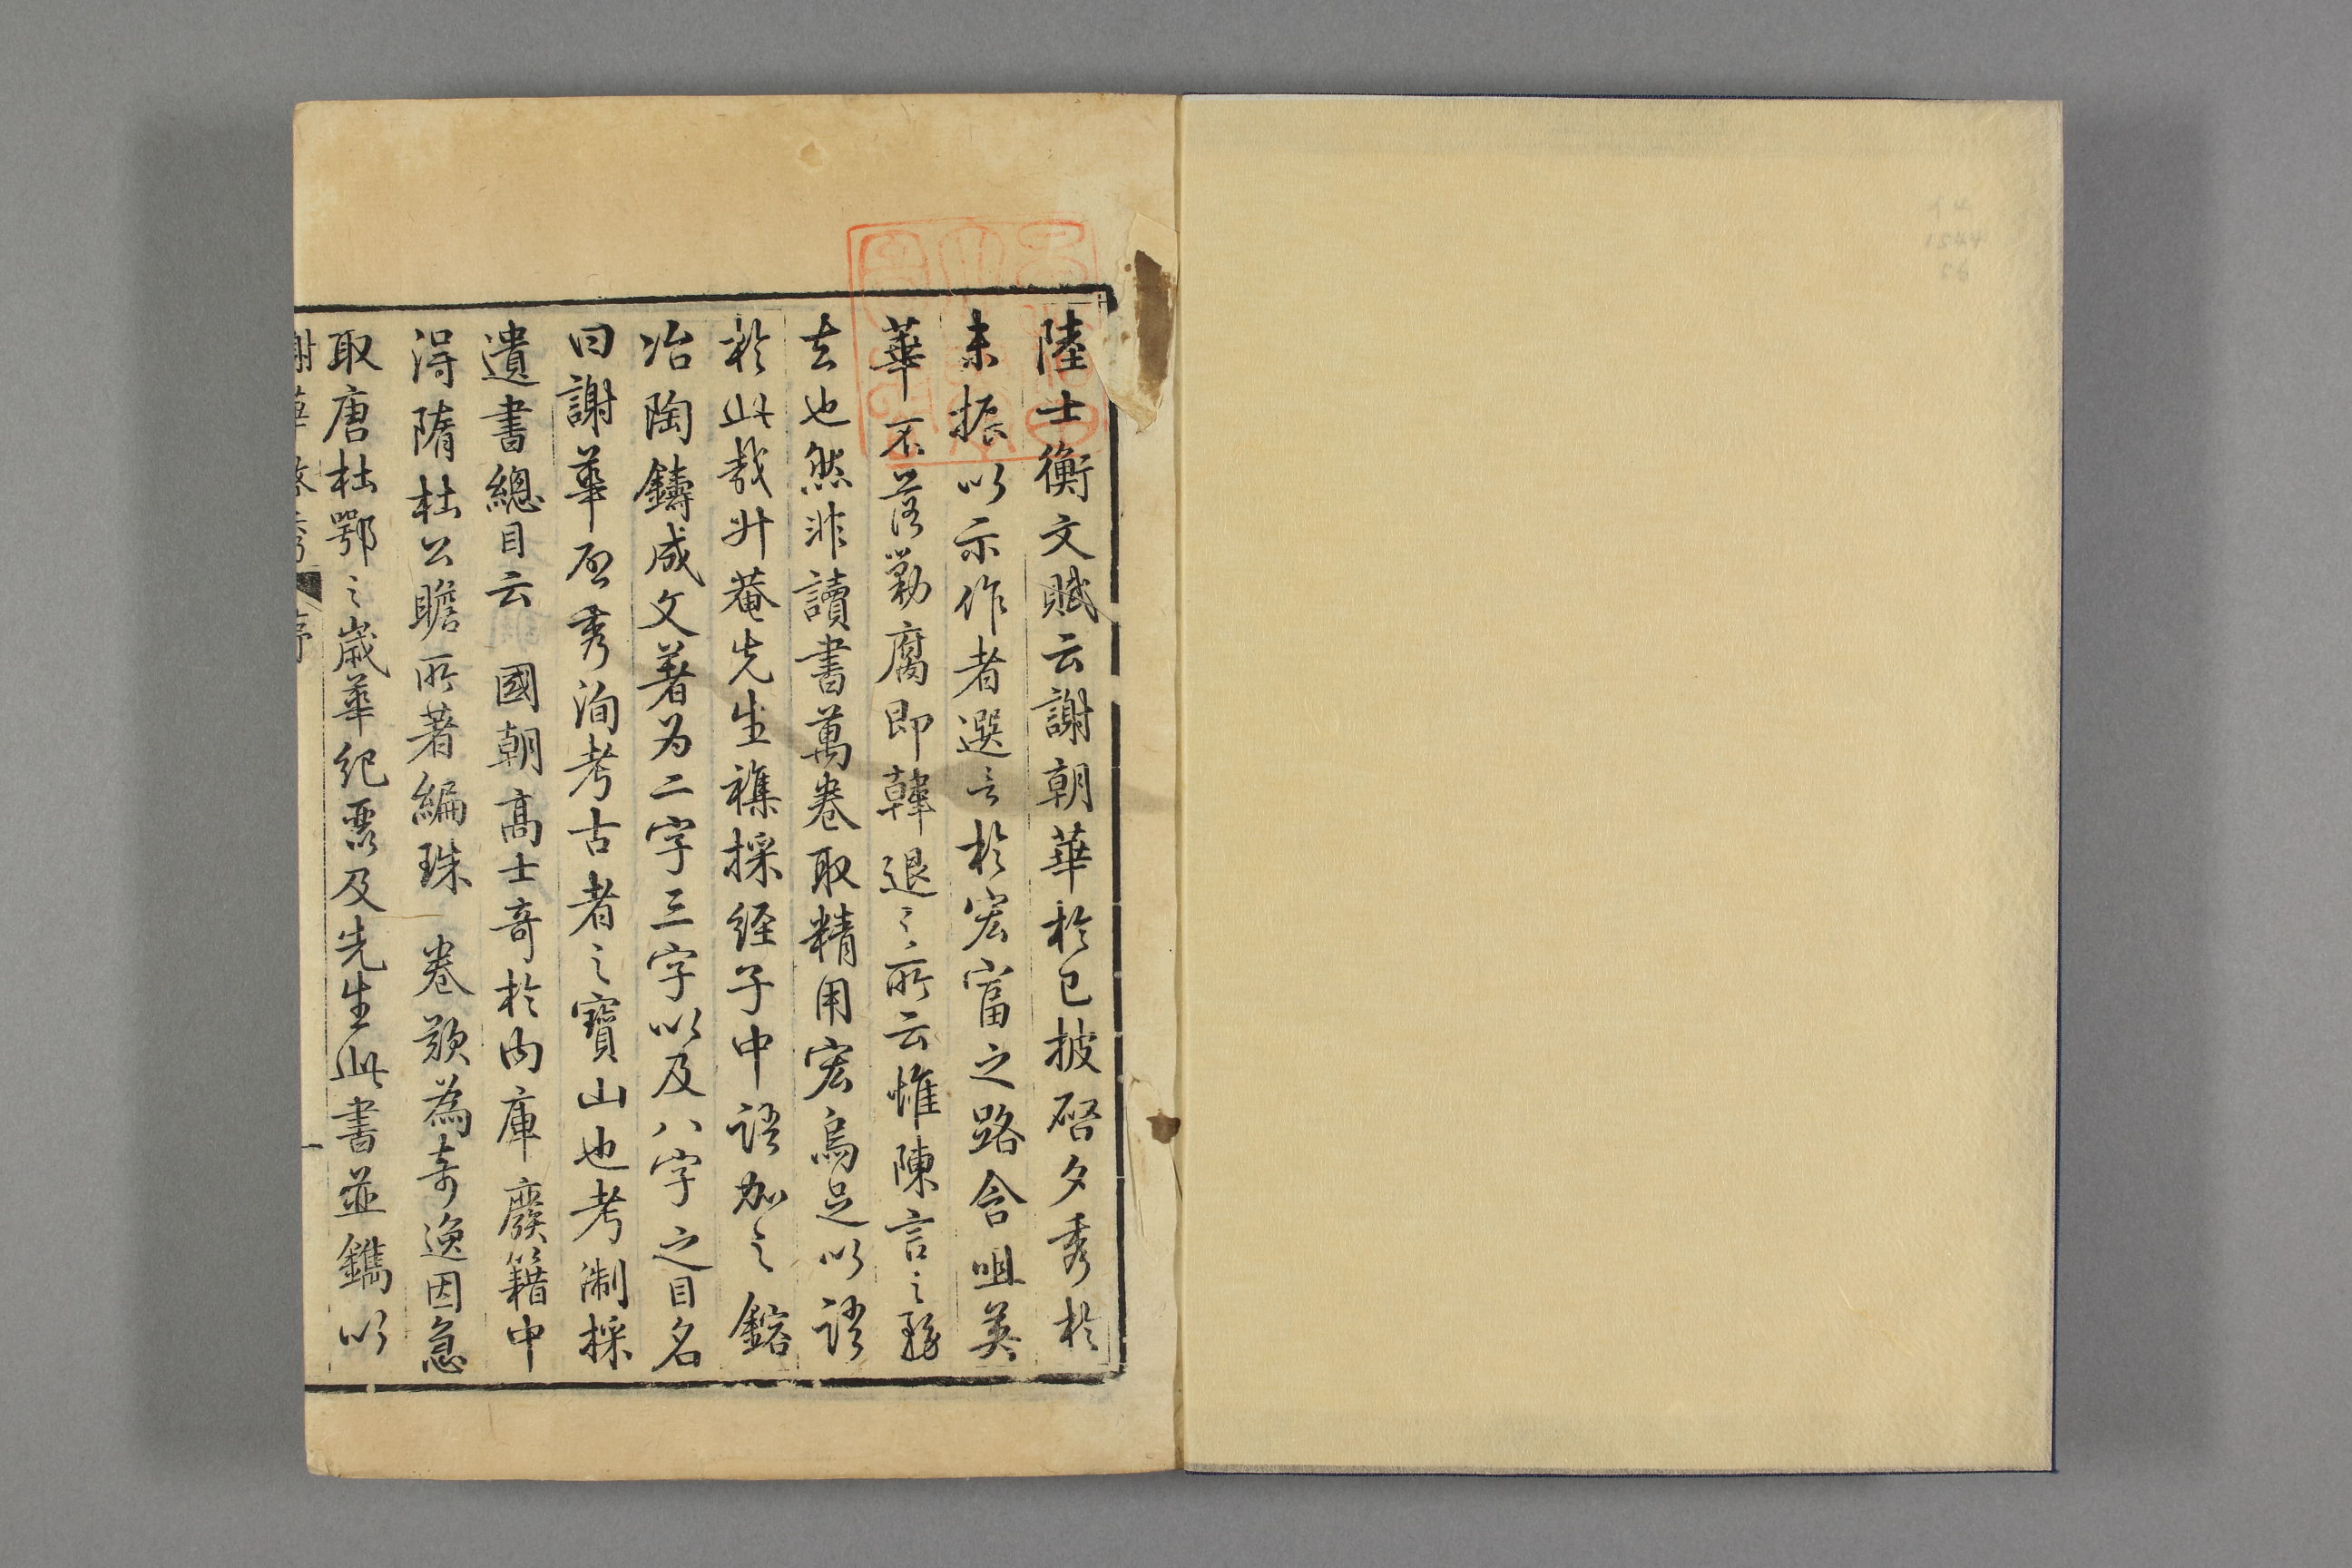 陸士衡文賦云謝朝華於已披启夕秀於
未振以示作者選言於宏富之路含咀英
華不落勦腐即韓退之所云惟陳言之務
去也然非讀書萬卷取精用宏烏足以語
於此哉升菴先生襍採經子中語加之鎔
冶陶鑄成文著为二字三字以及八字之目名
曰謝華启秀洵考古者之寶山也考制採
遺書總目云 國朝高士奇於内庫廢籍中
得隋杜公瞻所著編珠 卷歎為奇逸因急
取唐杜鄂之歲華紀麗及先生此書並鐫以
謝華啓秀 序 一